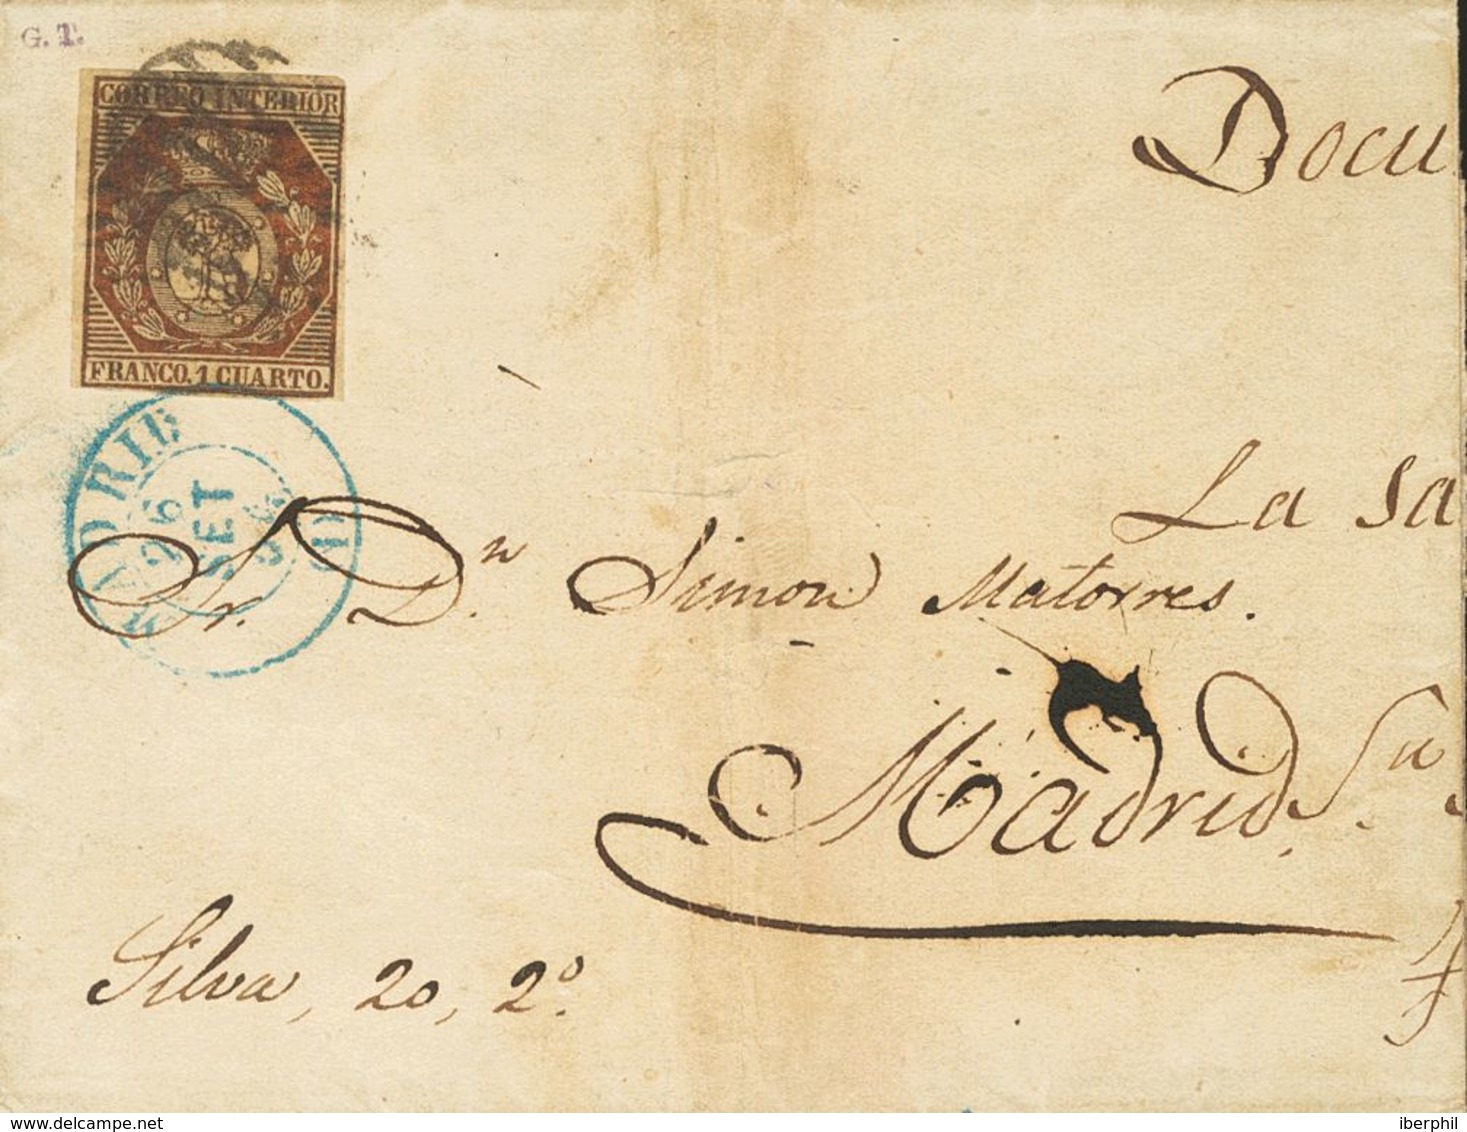 G. T.
CORREO INTERIOR
FRANCO. 1 CUARTO.
Docu
MADRID
26
SET
La sa
Sr. Dn. Simon Matorres.
Madrid.
Silva, 20, 2º.
www.delcampe.net
iberphil